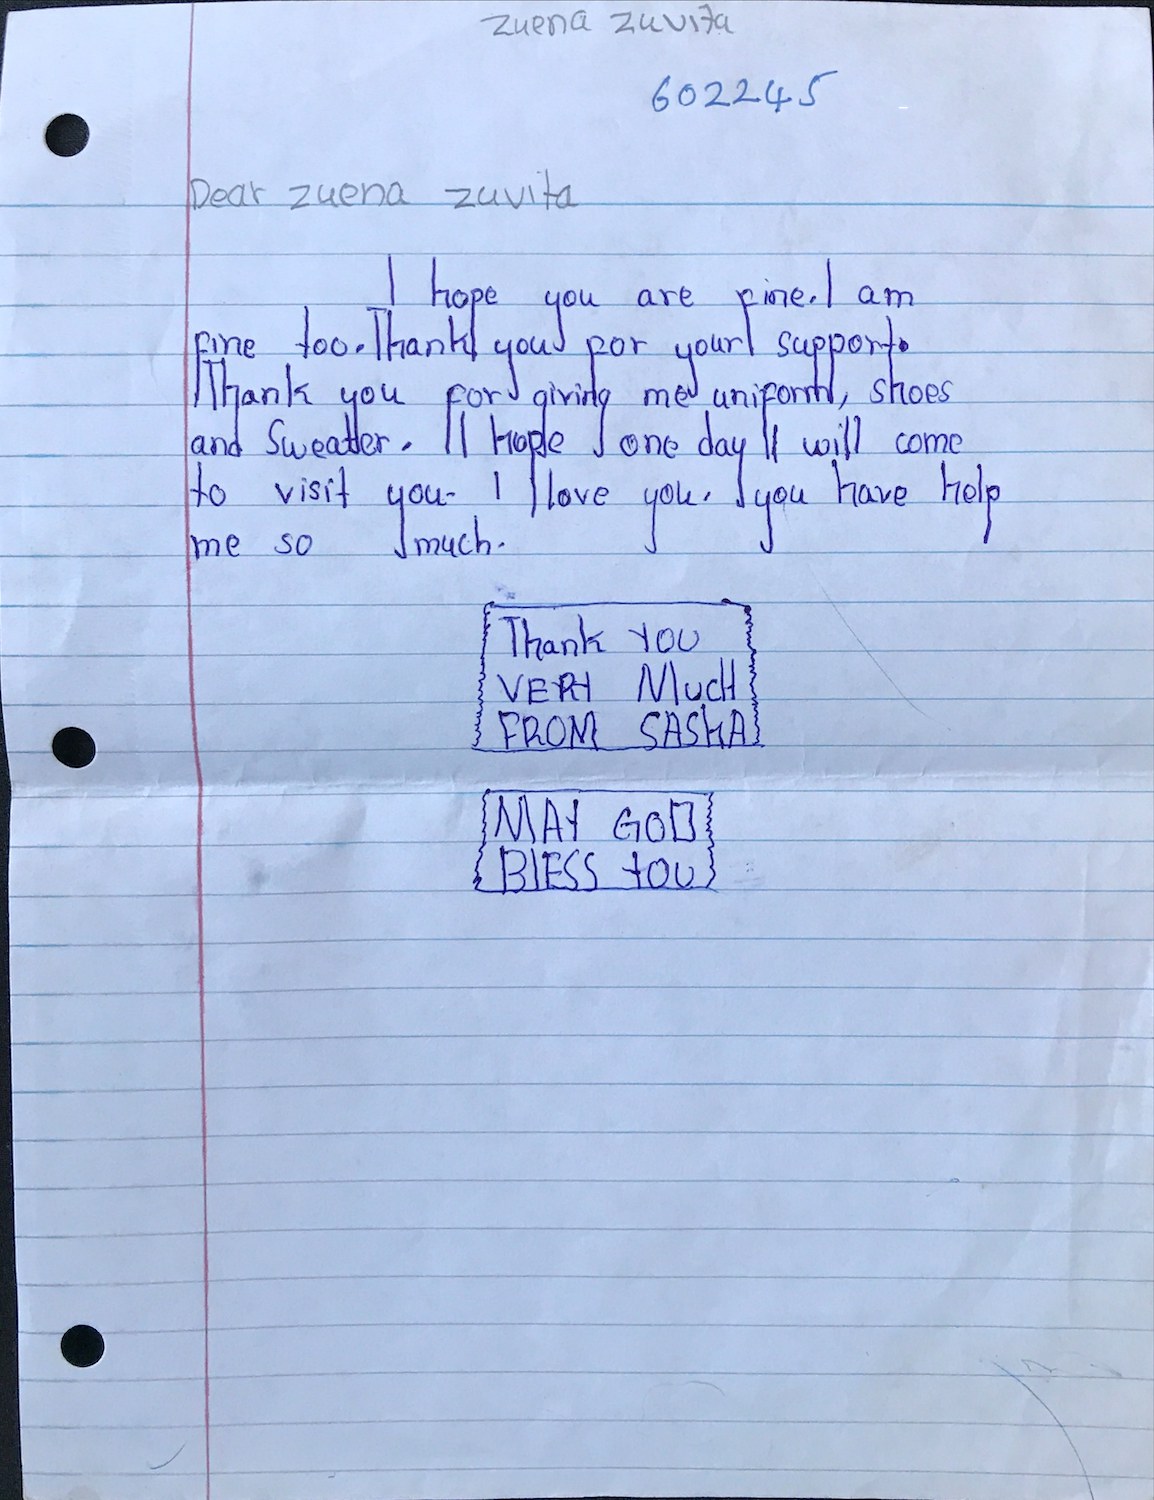 zuena zuvita
602245
Dear zuena zuvita
I hope you are fine. I am
fine too. Thank you for your support.
Thank you for giving me uniform, shoes
and Sweater. I hope one day I will come
to visit you. I love you. you have help
me so much.
Thank YOU
VERY MucH
FROM SASHA
MAY GOD
BlESS YOU